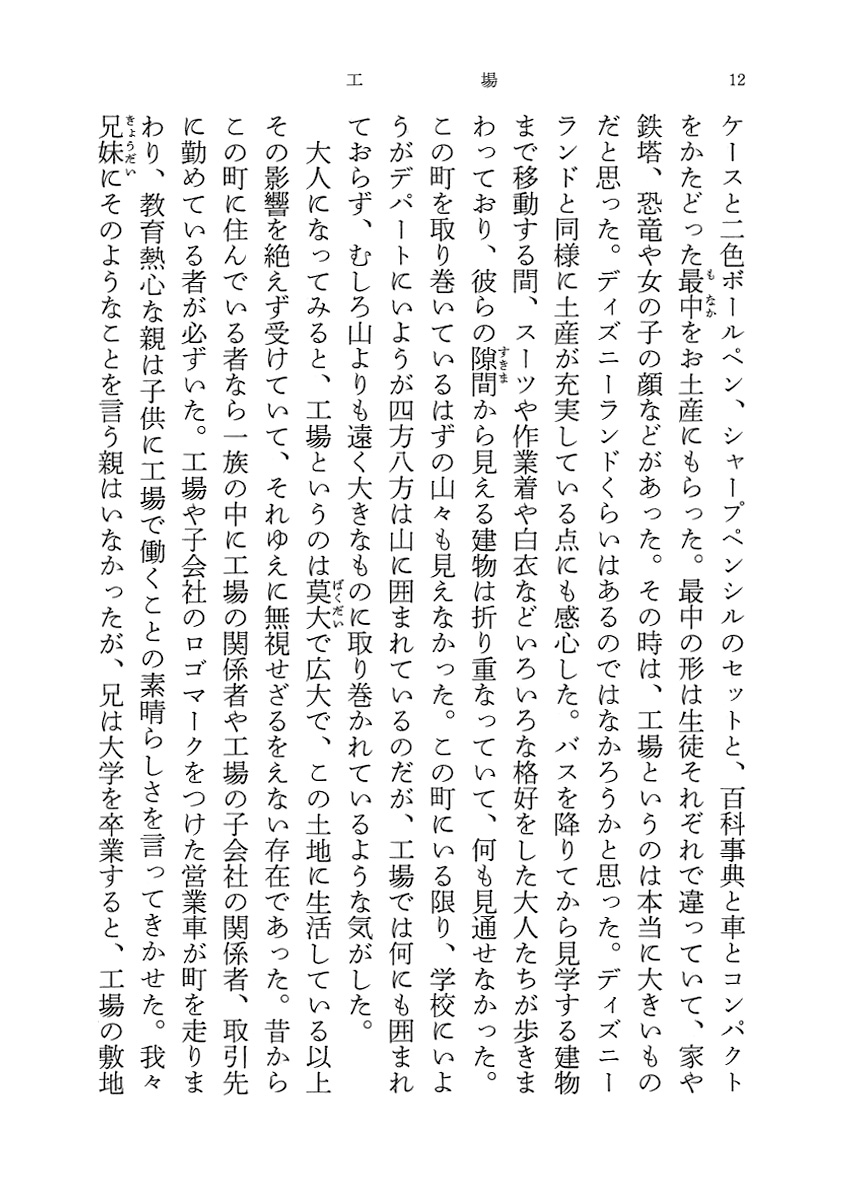 工場
12
ケースと二色ボールペン、シャープペンシルのセットと、百科事典と車とコンパクト
をかたどった最中をお土産にもらった。最中の形は生徒それぞれで違っていて、家や
鉄塔、恐竜や女の子の顔などがあった。その時は、工場というのは本当に大きいもの
だと思った。ディズニーランドくらいはあるのではなかろうかと思った。ディズニー
ランドと同様に土産が充実している点にも感心した。バスを降りてから見学する建物
まで移動する間、スーツや作業着や白衣などいろいろな格好をした大人たちが歩きま
わっており、彼らの隙間から見える建物は折り重なっていて、何も見通せなかった。
この町を取り巻いているはずの山々も見えなかった。この町にいる限り、学校にいよ
うがデパートにいようが四方八方は山に囲まれているのだが、工場では何にも囲まれ
ておらず、むしろ山よりも遠く大きなものに取り巻かれているような気がした。
　大人になってみると、工場というのは莫大で広大で、この土地に生活している以上
その影響を絶えず受けていて、それゆえに無視せざるをえない存在であった。昔から
この町に住んでいる者なら一族の中に工場の関係者や工場の子会社の関係者、取引先
に勤めている者が必ずいた。工場や子会社のロゴマークをつけた営業車が町を走りま
わり、教育熱心な親は子供に工場で働くことの素晴らしさを言ってきかせた。我々
兄妹にそのようなことを言う親はいなかったが、兄は大学を卒業すると、工場の敷地
もなか
すきま
ばくだい
きょうだい